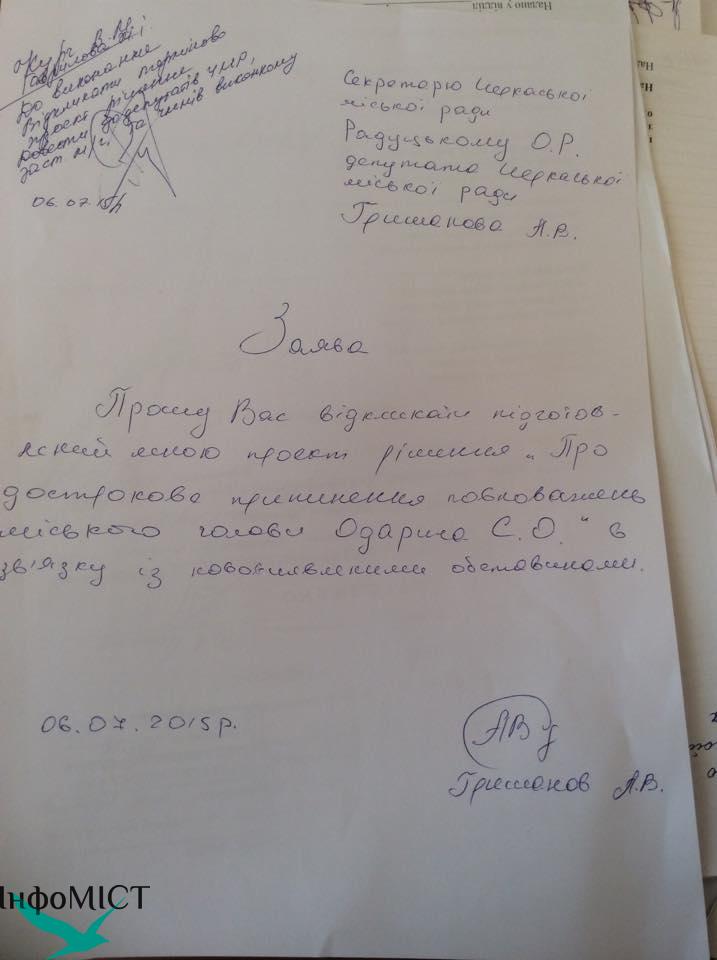 до виконання
Відкликати терміново
проєкт рішення
довести до депутатів ЧМР,
заст. м/г. та членів виконкому
06.07.15
Секретарю Черкаської
міської ради
Радуцькому О.Р.
депутата Черкаської
міської ради
Гришанова А.В.
Заява
Прошу Вас відкликати підготов-
лений мною проєкт рішення „Про
дострокове припинення повноважень
міського голови Одарича С.О." в
зв'язку із нововиявленими обставинами.
06.07.2015р.
АВ
Гришанов А.В.
ІнфоМІСТ
Надано у відділ